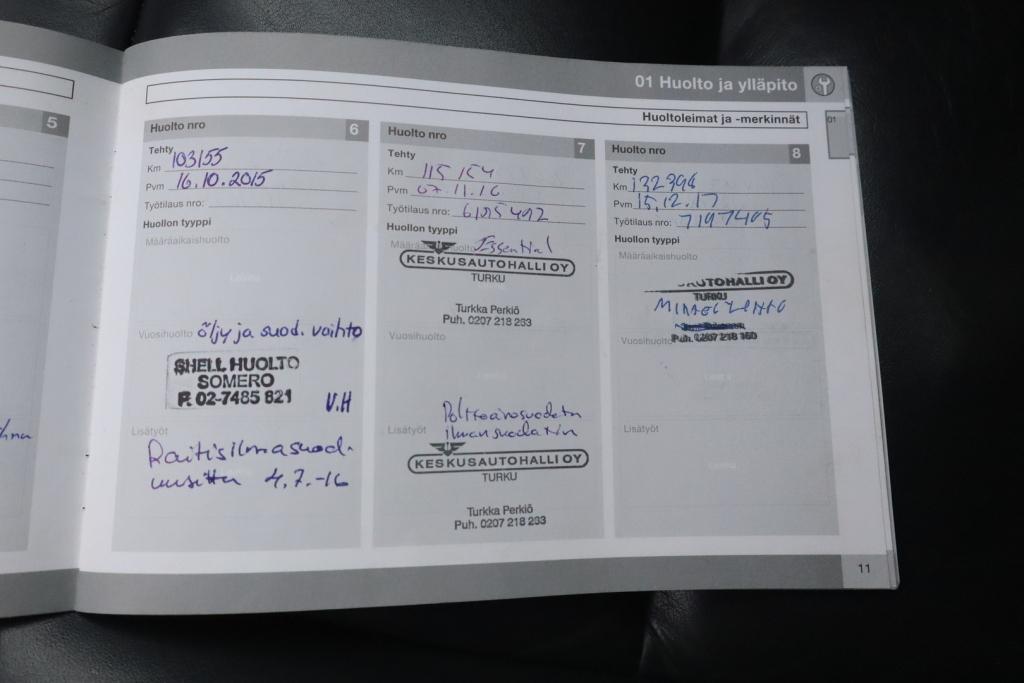 01 Huolto ja ylläpito
01
Huoltoleimat ja -merkinnät
5
Huolto nro 6
Tehty
Km 103155
Pvm 16.10.2015
Työtilaus nro:
Huollon tyyppi
Määräaikaishuolto
Vuosihuolto öljy ja suod. vaihto
SHELL HUOLTO
SOMERO
P. 02-7485 821
V.H
Lisätyöt
Raitisilmasuod.
uusittu 4.7.-16
Huolto nro 7
Tehty
Km 115 154
Pvm 07.11.16
Työtilaus nro:
Huollon tyyppi
Essential
KESKUSAUTOHALLI OY
TURKU
Turkka Perkiö
Puh. 0207 218 233
Vuosihuolto
Lisätyöt Polttoainesuodatin
ilmansuodatin
KESKUSAUTOHALLI OY
TURKU
Turkka Perkiö
Puh. 0207 218 233
Huolto nro 8
Tehty
Km 132396
Pvm 15.12.17
Työtilaus nro: 7197405
Huollon tyyppi
Määräaikaishuolto
AUTOHALLI OY
TURKU
Vuosihuolto
Puh. 0207 218 160
Lisätyöt
11